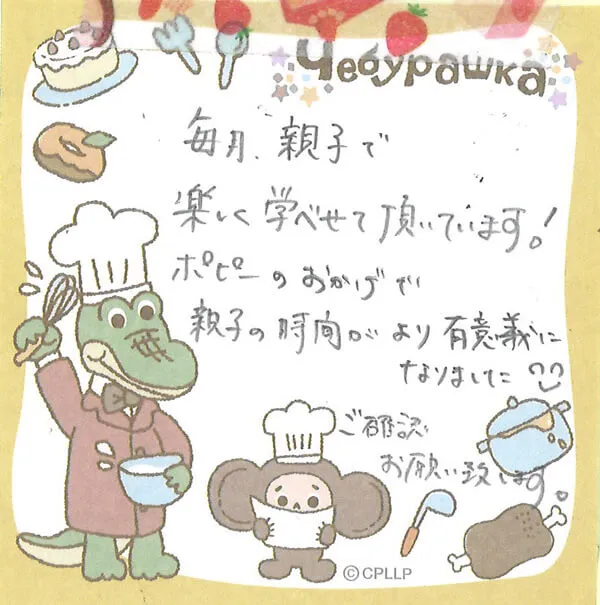 Чебурашка
毎月、親子で
楽しく学べせて頂いています!
ポピーのおかげで
親子の時間がより有意義に
なりました
ご確認
お願い致します。
©CPLLP